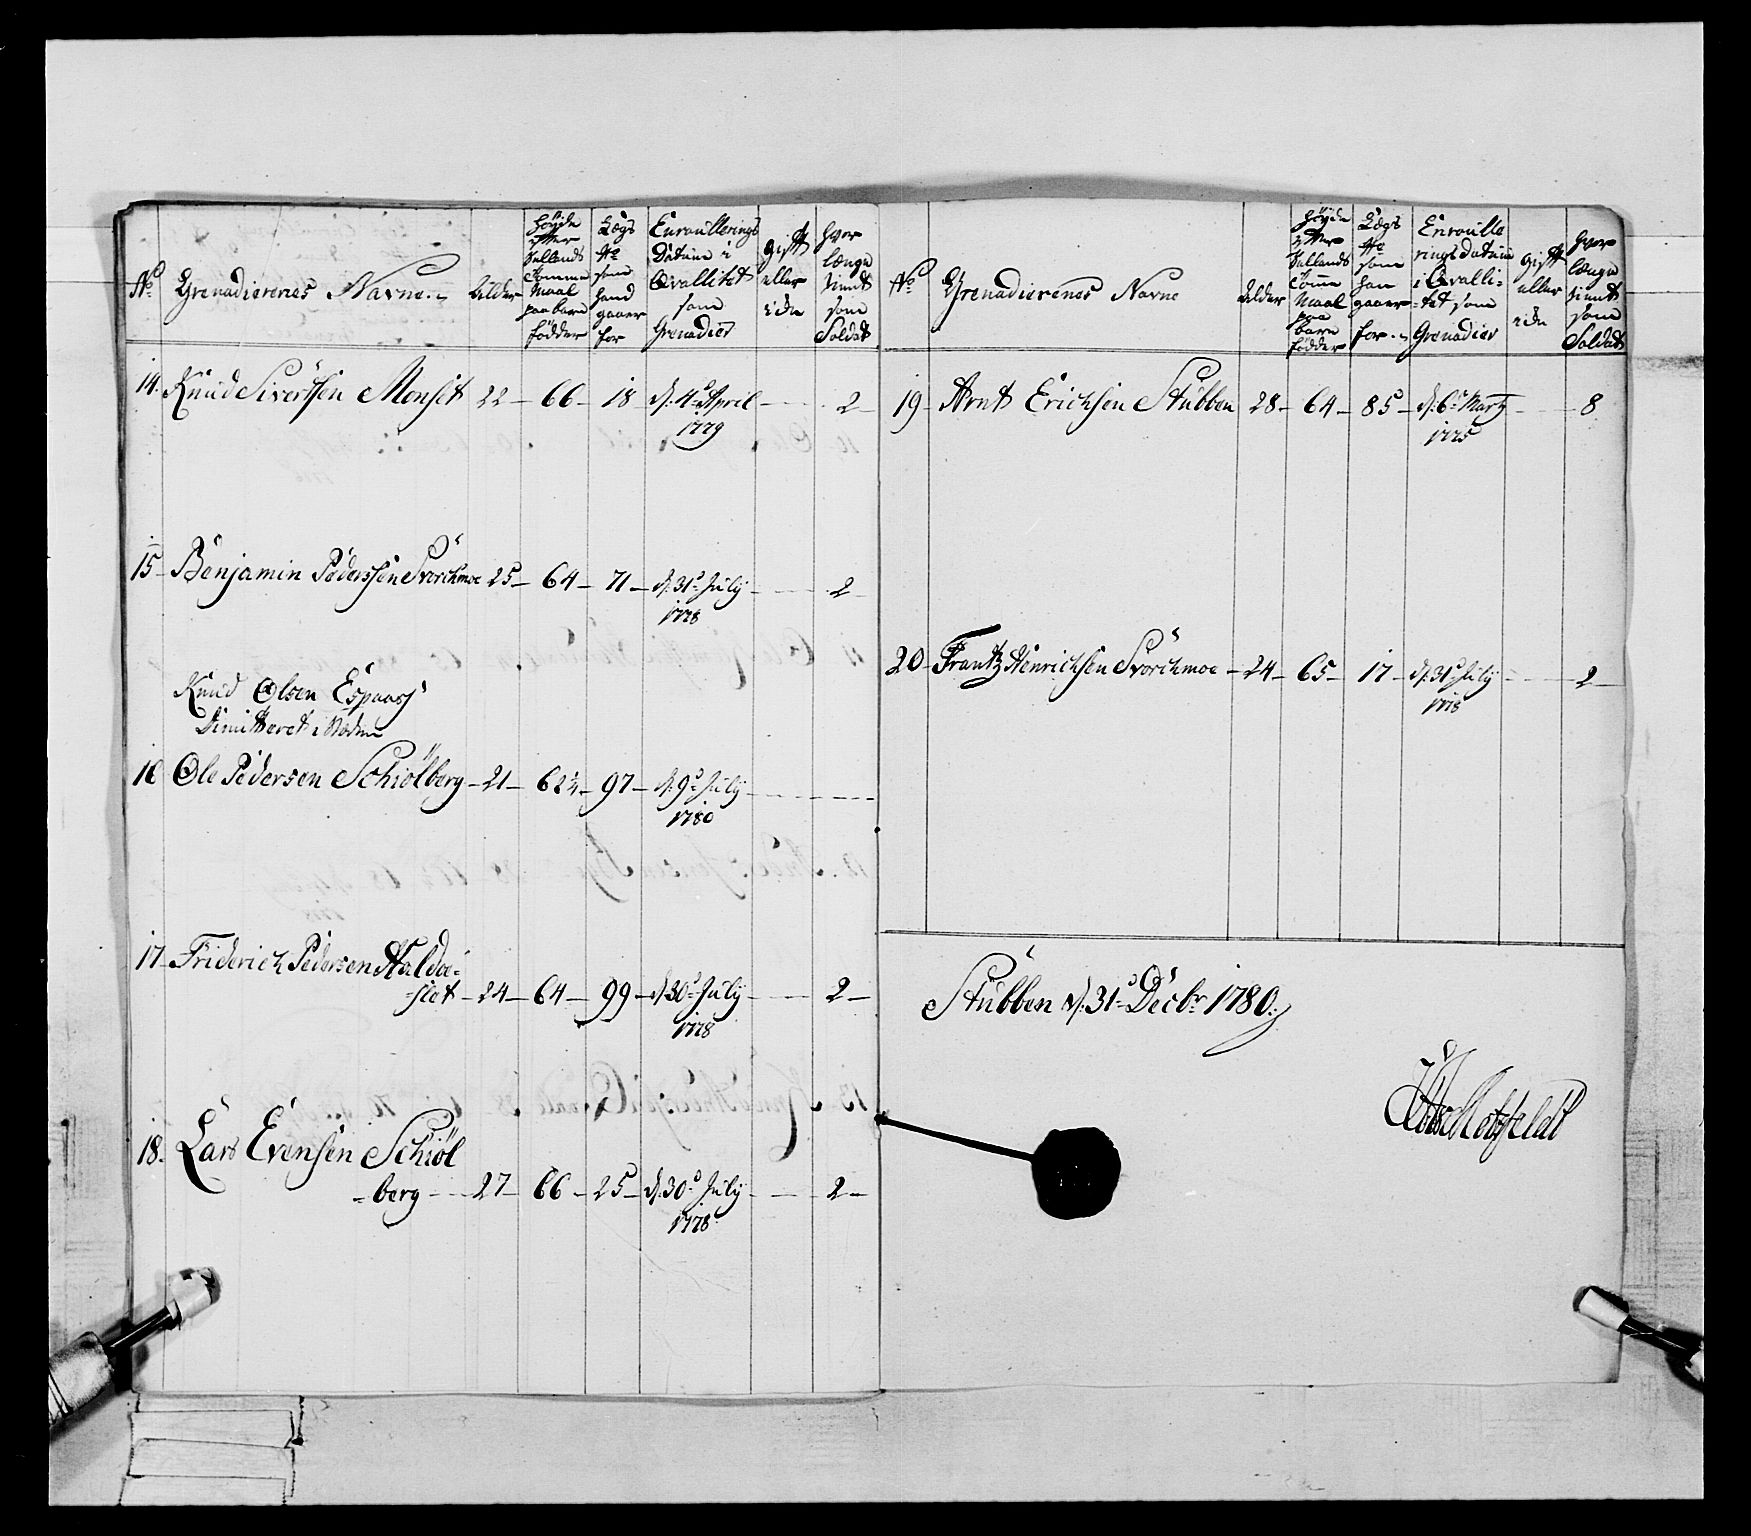 No Grenadierenes Navne Alder Høyde efter Sællands Tomme Maal paa bare fødder Lægs No som hand gaaer for Enroullerings Datum i Qvallitet som Grenadier Gift eller ide Hvor længe tient som Soldat
14. Knud Sivertsen Monset 22 – 66 – 18 – d. 4de April 1779 – 2
15 Benjamin Pedersen Svorchmoe 25 – 64 – 71 – d. 31te July 1778 – 2
Knud Olsen Espaas
Dimitteret i Steden
16 Ole Pedersen Schiölberg – 21 – 62¼ – 97 – d. 9de July 1780
17 Friderich Pedersen Haldoe-
-slet – 24 – 64 – 99 – d. 30te July 1778 – 2
18. Lars Evensen Schiöl
-berg – 27 – 66 – 25 – d. 30te July 1778 – 2
No Grenadierenes Navne Alder Høyde efter Sællands Tomme Maal paa bare fødder Lægs No som han gaaer for Enroulle rings datum i Qvalli- -tet som Grenadier Gift eller ide Hvor længe tient som Soldat
19 – Arnt Erichsen Stübben 28 – 64 – 85 – d. 6te Martz 1775 – 8
20 – Frantz Henrichsen Svorchmoe – 24 – 65 – 17 – d. 31te July 1778 – 2
Stübben d. 31te Decbr 1780